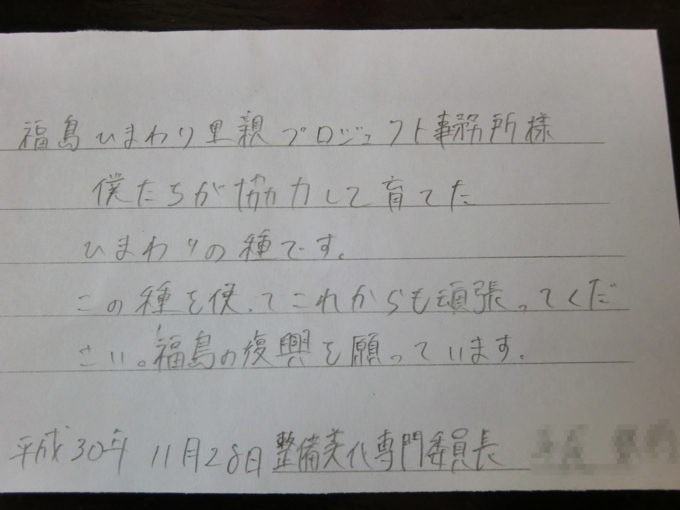 福島ひまわり里親プロジェクト事務所様
僕たちが協力して育てた
ひまわりの種です。
この種を使ってこれからも頑張ってくだ
さい。福島の復興を願っています。
平成30年 11月28日 整備美化専門委員長